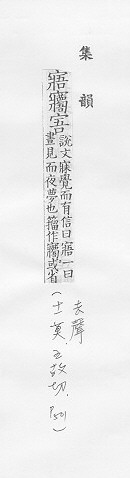 集韻
寤𡬒𡧥說文寐覺而有信曰寤一曰
晝見而夜夢也籀作𡬒或省
(去聲
十一莫五故切. P.501)